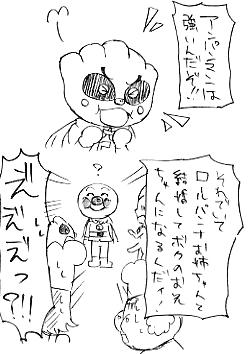 アンパンマンは
強いんだぞ!!
それでいて
ロルパンナお姉ちゃんと
結婚してボクのお兄
ちゃんになるんだー!
?
ええええっ?!!